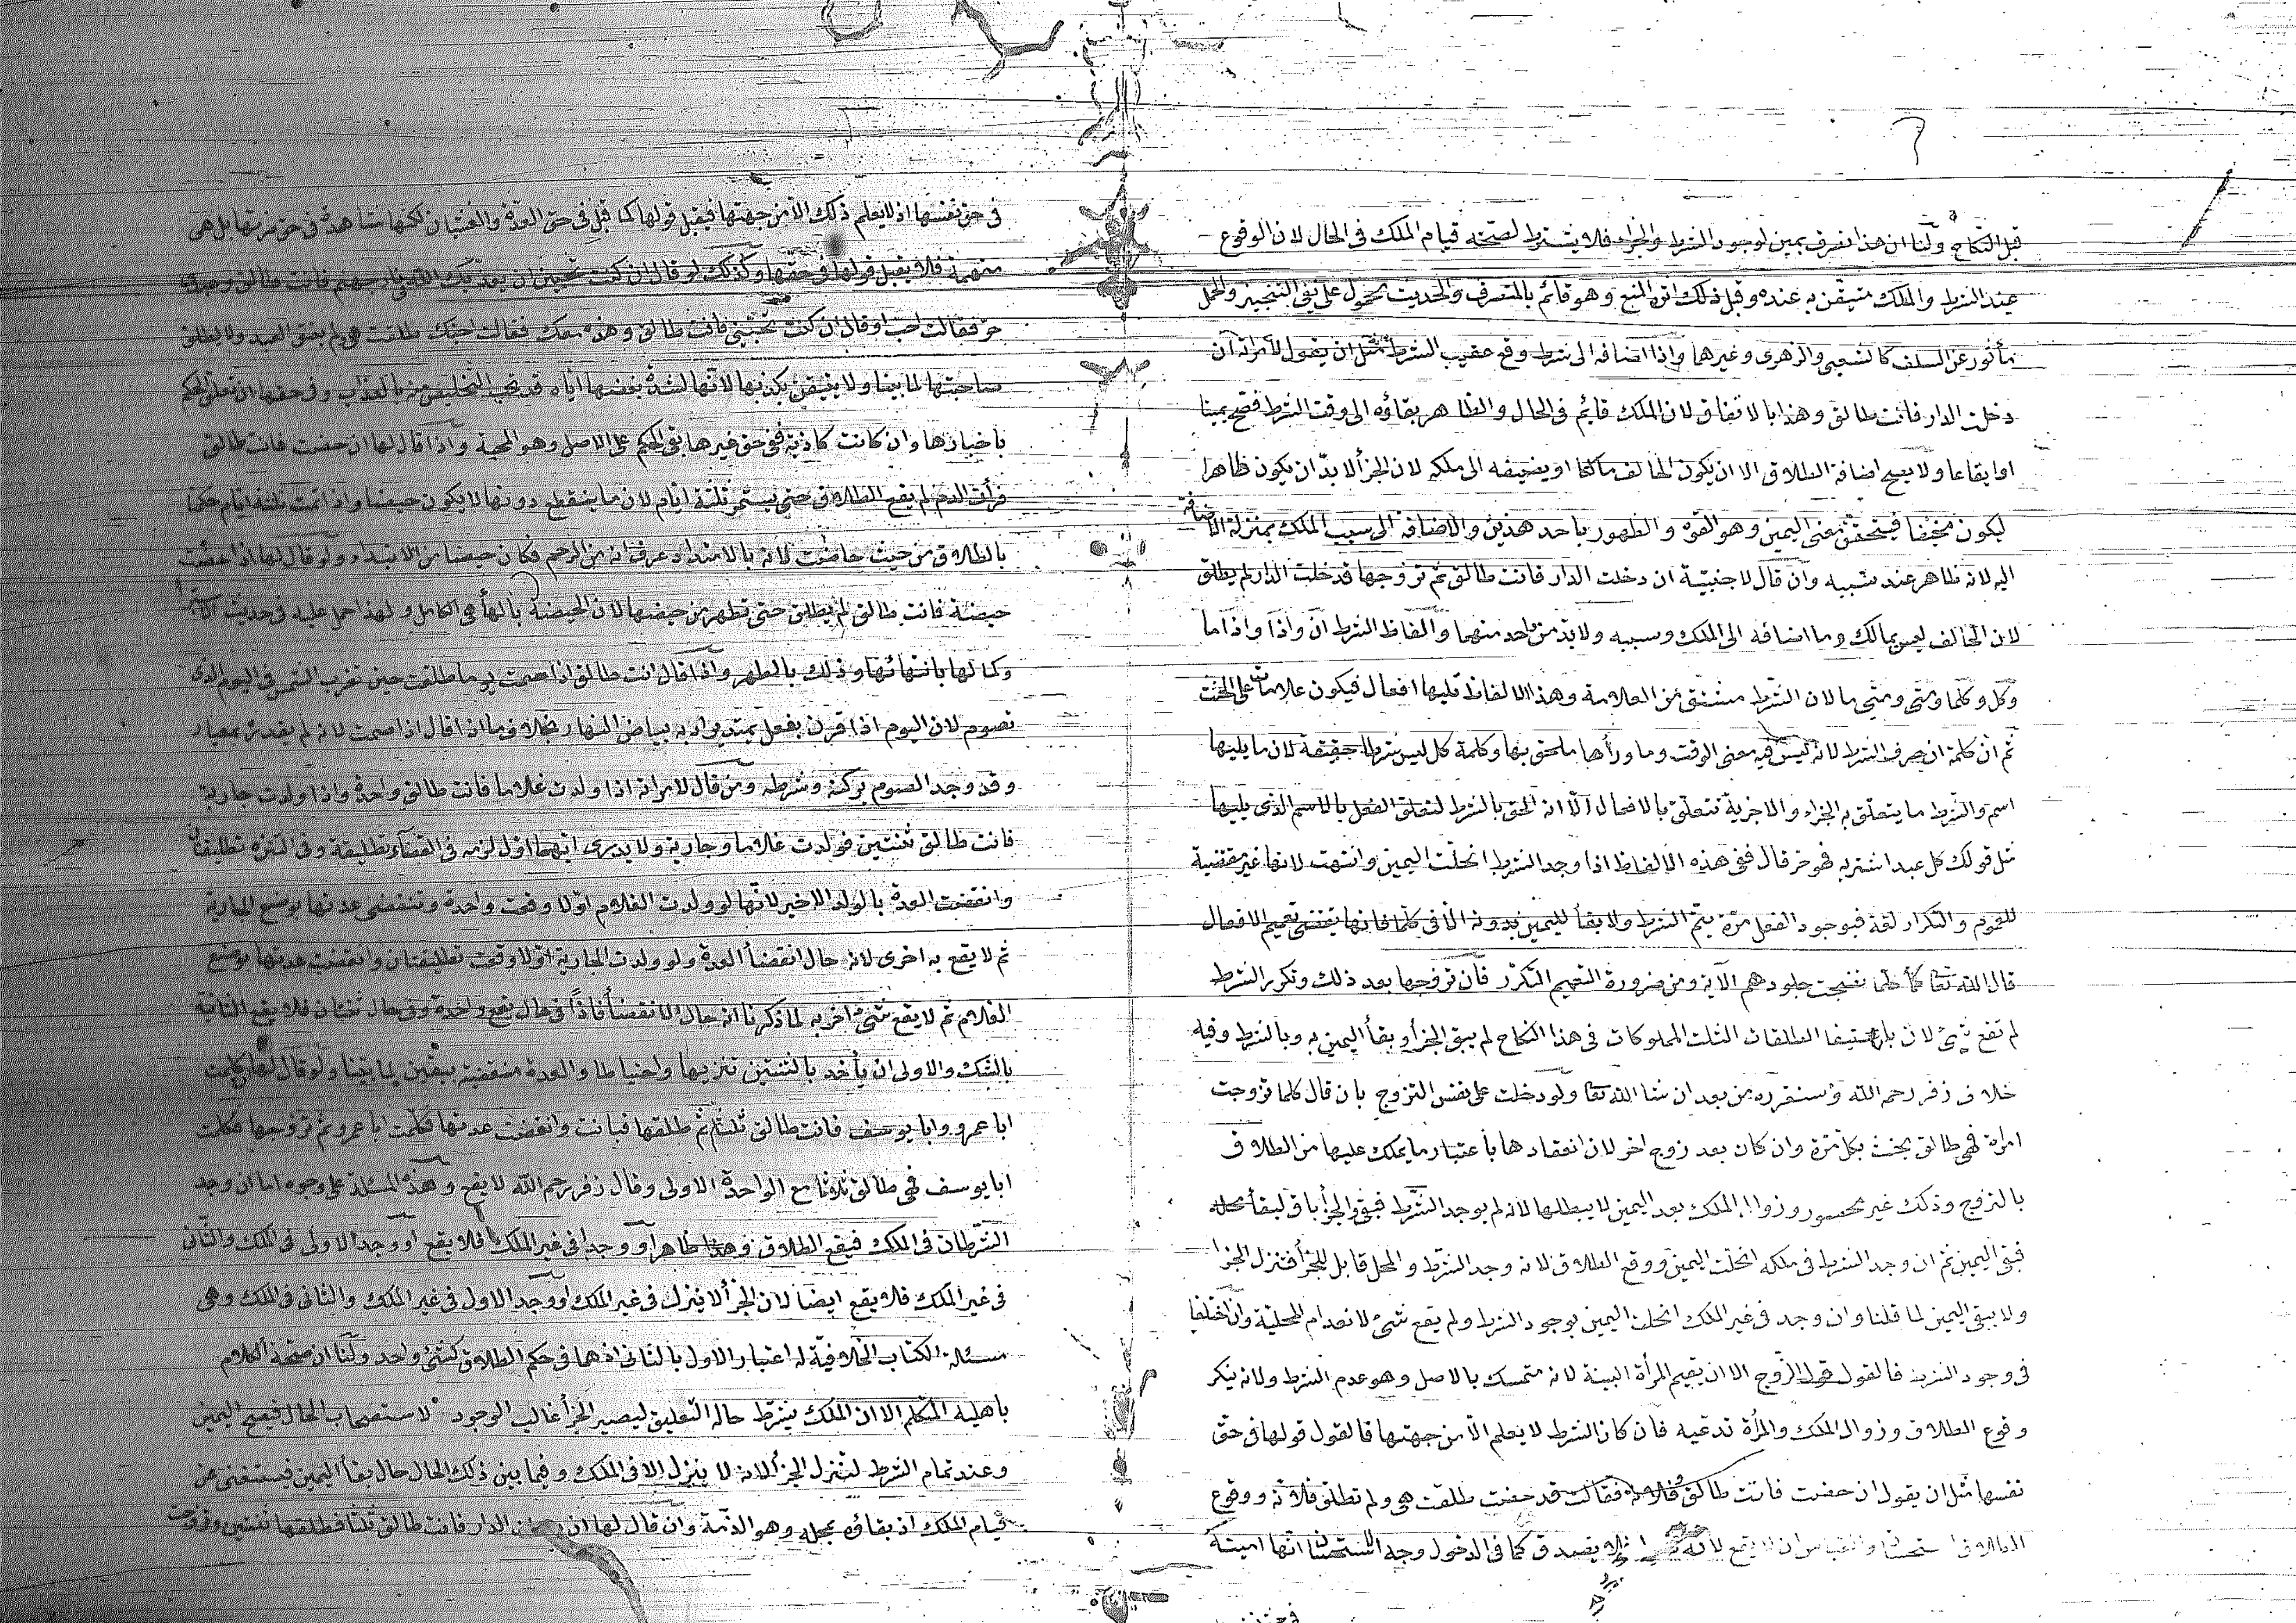 قبل النكاح ولنا ان هذا تصرف يمين لوجود الشرط والجزاء فلا يشترط لصحته قيام الملك فى الحال لان الوقوع
عند الشرط والملك متيقن به عنده وقبل ذلك اثره المنع وهو قائم بالمتصرف والحديث محمول على نفى التنجيز والحمل
مأثور عن السلف كالشعبى والزهرى وغيرها واذا اضافه الى شرط وقع عقيب الشرط مثل ان يقول لامراته ان
دخلت الدار فانت طالق وهذا بالاتفاق لان الملك قايم فى الحال والظاهر بقاؤه الى وقت الشرط فصح يمينا
او ايقاعا ولا يصح اضافة الطلاق الا ان يكون الحالف مالكا او يضيفه الى ملكه لان الجزأ لا بدّ ان يكون ظاهرا
ليكون مخيفا فيتحقق معنى اليمين وهو القوة والظهور باحد هذين والاضافة الى سبب الملك بمنزلة الاضافة
اليه لانه ظاهر عند سببه وان قال لاجنبية ان دخلت الدار فانت طالق ثم تزوجها فدخلت الدار لم يطلق
لان الحالف ليس بمالك وما اضافه الى الملك وسببه ولا بد من واحد منهما والفاظ الشرط ان واذا واذا ما
وكل وكلما ومتى ومتى ما لان الشرط مشتق من العلامة وهذه الالفاظ تليها افعال فيكون علامات على الحنث
ثم ان كلمة ان صرف للشرط لانه ليس فيه معنى الوقت وما ورأها ملحق بها وكلمة كل ليس شرطا حقيقة لان ما يليها
اسم والشرط ما يتعلق به الجزاء والاجزية تتعلق بالافعال الا انه الحق بالشرط لتعلق الفعل بالاسم الذى يليها
مثل قولك كل عبد اشتريه فهو حر قال ففى هذه الالفاظ اذا وجد الشرط انحلت اليمين وانتهت لانها غير مقتضية
للعموم والتكرار لغة فبوجود الفعل مرة يتم الشرط ولا بقأ لليمين بدونه الا فى كلما فانها يقتضى تعميم الافعال
قال الله تعا كلما نضجت جلودهم الاية ومن ضرورة التعميم التكرر فان تزوجها بعد ذلك وتكرر الشرط
لم تقع شئ لان باستيفا الطلقات الثلث المملوكات فى هذا النكاح لم يبق الجزأ وبقأ اليمين به وبالشرط وفيه
خلاف زفر رحم الله وسنقرره من بعد ان شا الله تعا ولو دخلت على نفس التزوج بان قال كلما تزوجت
امراة فهى طالق يحنث بكل مرة وان كان بعد زوج اخر لان انعقادها باعتبار ما يملك عليها من الطلاق
بالتزوج وذلك غير محصور وزوال الملك بعد اليمين لا يبطلها لانه لم يوجد الشرط فبقى والجزأ باق لبقأ محله
فبقى اليمين ثم ان وجد الشرط فى ملكه انحلت اليمين ووقع الطلاق لانه وجد الشرط والمحل قابل للجزأ فنزل الجزا
ولا يبقى اليمين لما قلنا وان وجد فى غير الملك انحلت اليمين بوجود الشرط ولم يقع شئ لانعدام المحلية وان اختلفا
فى وجود الشرط فالقول قول الزوج الا ان يقيم المرأة البينة لانه متمسك بالاصل وهو عدم الشرط ولانه ينكر
وقوع الطلاق وزوال الملك والمرأة تدعيه فان كان الشرط لا يعلم الا من جهتها فالقول قولها فى حق
نفسها مثل ان يقول ان حضت فانت طالق وفلانة فقالت قد حضت طلقت هى ولم تطلق فلانة ووقوع
الطلاق استحسان والقياس ان لا يقع لانه فلا يصدق كما فى الدخول وجه الاستحسان انها امينة
فى حق نفسها اذ لا يعلم ذلك الا من جهتها فيقبل قولها كما قبل فى حق العدة والغشيان لكنها شاهدة فى حق ضرتها بل هى
متهمة فلا يقبل قولها فى حقها وكذلك لو قال ان كنت تحبين ان يعذبك الله فى نار جهنم فانت طالق وعبدى
حر فقالت احب او قال ان كنت تحبينى فانت طالق وهذه معك فقالت احبك طلقت هى ولم يعتق العبد ولا يطلق
صاحبتها لما بينا ولا يتيقن بكذبها لانها لشدة بغضها اياه قد تحب التخليص منه بالعذاب وفى حقها ان تعلق الحكم
باخبارها وان كانت كاذبة ففى حق غيرها بقى الحكم على الاصل وهو المحبة واذا قال لها ان حضت فانت طالق
فرأت الدم لم يقع الطلاق حتى يستمر ثلثة ايام لان ما ينقطع دونها لا يكون حيضا واذا تمت ثلثة ايام حكمنا
بالطلاق من حيث حاضت لانه بالامتداد عرف انه من الرحم فكان حيضا من الابتداء ولو قال لها اذا حضت
حيضة فانت طالق لم يطلق حتى تطهر من حيضها لان الحيضة بالهأ هى الكامل ولهذا حمل عليه فى حديث الاستبراء
وكمالها بانتهائها وذلك بالطهر واذا قال انت طالق اذا صمت يوما طلقت حين تغرب الشمس فى اليوم الذى
تصوم لان اليوم اذا قرن بفعل يمتد يراد به بياض النهار بخلاف ما اذا قال اذا صمت لانه لم يقدره بمعيار
وقد وجد الصوم بركنه وشرطه ومن قال لامراته اذا ولدت غلاما فانت طالق واحدة واذا ولدت جارية
فانت طالق ثنتين فولدت غلاما وجارية ولا يدرى ايهما اول لزمه فى القضأ تطليقة وفى التنزه تطليقتان
وانقضت العدة بالولد الاخير لانها لو ولدت الغلام اولا وقعت واحدة وتنقضى عدتها بوضع الجارية
ثم لا يقع به اخرى لانه حال انقضأ العدة ولو ولدت الجارية اولا وقعت تطليقتان وانقضت عدتها بوضع
الغلام ثم لا يقع شئ اخر به لما ذكرنا انه حال الانقضأ فاذا فى حال يقع واحدة وفى حال ثنتان فلا يقع الثانية
بالشك والاولى ان يأخذ بالثنتين تنزيها واحتياطا والعدة منقضية بيقين لما بينا ولو قال لها ان كلمت
ابا عمرو وابا يوسف فانت طالق ثلثا ثم طلقها فبانت وانقضت عدتها فكلمت ابا عمرو ثم تزوجها فكلمت
ابا يوسف فهى طالق ثلاثا مع الواحدة الاولى وقال زفر رحم الله لا يقع وهذه المسئلة على وجوه اما ان وجد
الشرطان فى الملك فيقع الطلاق وهذا ظاهر او وجدا فى غير الملك فلا يقع او وجد الاولى فى الملك والثانى
فى غير الملك فلا يقع ايضا لان الجزأ لا ينزل فى غير الملك او وجد الاول فى غير الملك والثانى فى الملك وهى
مسئلة الكتاب الخلافية له اعتبار الاول بالثانى اذ هما فى حكم الطلاق كشئ واحد ولنا ان صحة الكلام
باهلية المتكلم الا ان الملك يشرط حالة التعليق ليصير الجزأ غالب الوجود لاستصحاب الحال فيصح اليمين
وعند تمام الشرط لينزل الجزأ لانه لا ينزل الا فى الملك وفيما بين ذلك الحال حال بقأ اليمين فيستغنى عن
قيام الملك اذ بقاؤه بمحله وهو الذمة وان قال لها ان الدار فانت طالق ثلثا فطلقها ثنتين وتزوجت